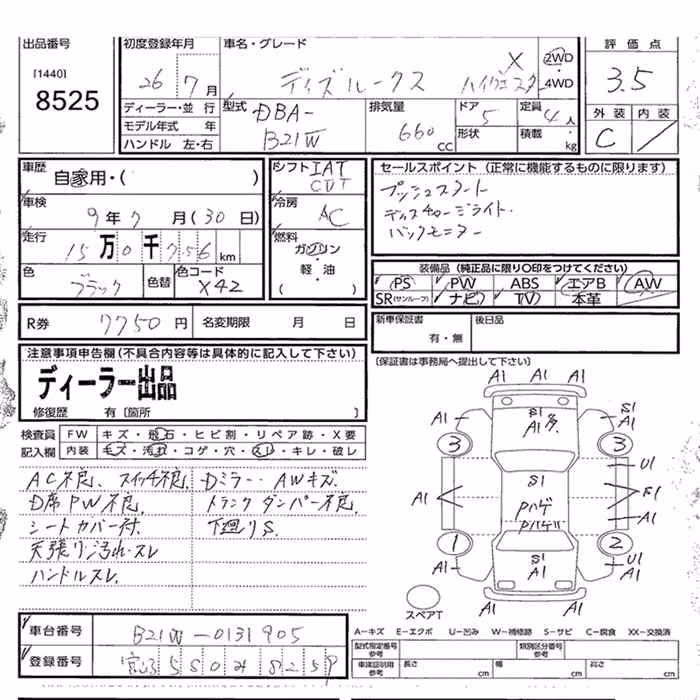 出品番号
[1440]
8525
初度登録年月
26 7月
車名・グレード
ディズルークス X ハイウェイスター
2WD
4WD
評価点
3.5
外装 内装
C /
ディーラー・並行
モデル年式 年
ハンドル 左・右
型式
DBA-
B21W
排気量
660 cc
ドア 5
形状
定員 4人
積載 kg
車歴
自家用・( )
車検
9年7月(30日)
走行
15万0千756km
色
ブラック
色替
色コード
X42
シフト IAT
CVT
冷房
AC
燃料
ガソリン
軽・油
( )
セールスポイント (正常に機能するものに限ります)
プッシュスタート
ディスチャージライト.
バックモニター
装備品 (純正品に限り○印をつけてください)
PS PW ABS エアB AW
SR(サンルーフ) ナビ TV 本革
R券 7750円
名変期限 月 日
新車保証書
有・無
後日品
注意事項申告欄(不具合内容等は具体的に記入して下さい)
ディーラー出品
修復歴 有[箇所 ]
[保証書は事務局へ提出して下さい]
検査員
記入欄
FW キズ・飛石・ヒビ割・リペア跡・X要
内装 キズ・汚れ・コゲ・穴・スレ・キレ・破レ
AC不良、スイッチ不良、Dミラー・AWキズ.
D席PW不良 トランクダンパー不良.
シートカバー付. 下廻りS.
天張り汚れ・スレ
ハンドルスレ.
A1 A1 A1
A1
S1
A1多
S1
A1
3
3
U1
A1
S1
Pハゲ
Pハゲ
F1
A1
1
2
S1
A1
A1
U1
A1
A1
スペアT
A-キズ E-エクボ U-凹み W-補修跡 S-サビ C-腐食 XX-交換済
車台番号
B21W-0131905
登録番号
580 8259
型式指定番号
参考
類別区分番号
参考
車検証明用
参考
長さ cm
幅 cm
高さ cm